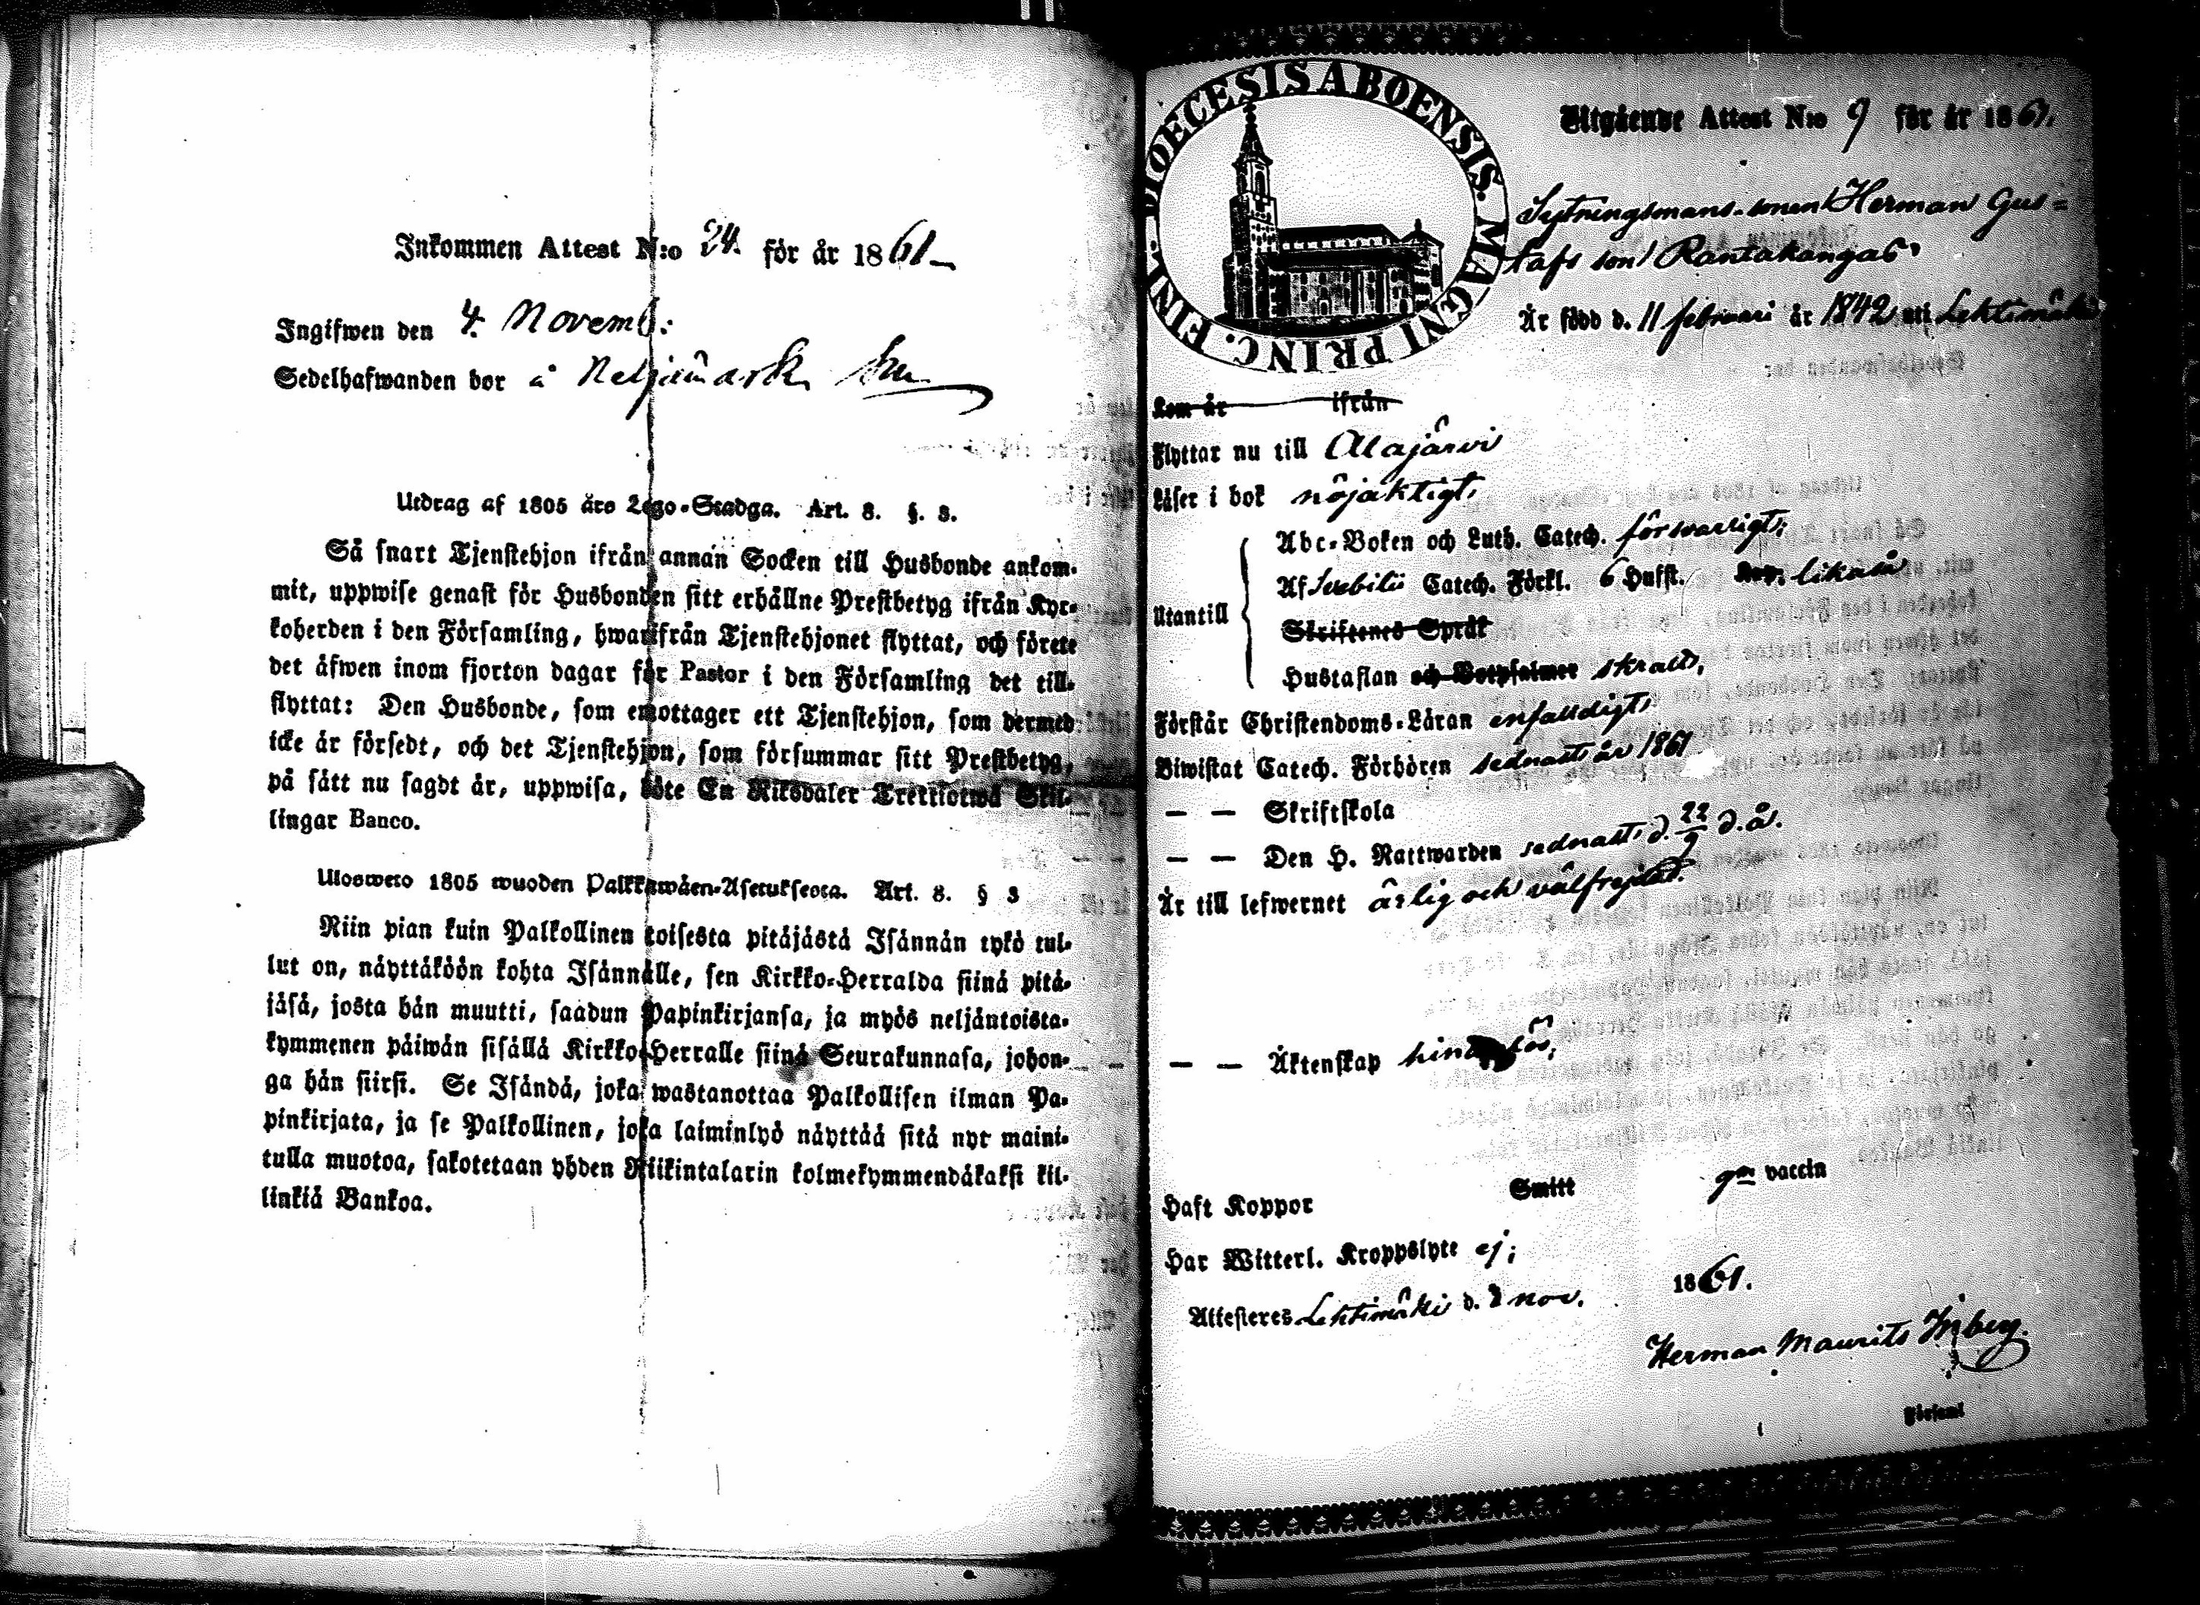 Inkommen Attest N:o 24. för år 1861
Ingifwen den 4. Novemb:
Sedelhafwanden bor å Neljämark
Utdrag af 1805 års Lego-Stadga. Art. 8. §. 3.
Så snart Tjenstehjon ifrån annan Socken till Husbonde ankom-
mit, uppwise genast för Husbonden sitt erhållne Prestbetyg ifrån Kyr-
koherden i den Församling, hwarifrån Tjenstehjonet flyttat, och förete
det äfwen inom fjorton dagar för Pastor i den Församling det till-
flyttat: Den Husbonde, som emottager ett Tjenstehjon, som dermed
icke är försedt, och det Tjenstehjon, som försummar sitt Prestbetyg,
på sätt nu sagdt är, uppwisa, böte En Riksdaler Trettiotwå Skil-
lingar Banco.
Ulosweto 1805 wuoden Palkkawäen-Asetuksesta. Art. 8. § 3
Niin pian kuin Palkollinen toisesta pitäjästä Isännän tykö tul-
lut on, näyttäköön kohta Isännälle, sen Kirkko-Herralda siinä pitä-
jäsä, josta hän muutti, saadun Papinkirjansa, ja myös neljäntoista-
kymmenen päiwän sisällä Kirkko-Herralle siinä Seurakunnasa, johon-
ga hän siirsi. Se Isändä, joka wastanottaa Palkollisen ilman Pa-
pinkirjata, ja se Palkollinen, joka laiminlyö näyttää sitä nyt maini-
tulla muotoa, sakotetaan yhden Riikintalarin kolmekymmendäkaksi kil-
linkiä Bankoa.
DIOECESIS ABOENSIS. MAGNI PRINC. FINL.
Utgående Attest N:o 9 för år 1861.
Sytningsmans-sonen Herman Gus=
tafs son Rantakangas
Är född d. 11 februari år 1842 uti Lehtimäki
Kom år ifrån
Flyttar nu till Alajärvi
Läser i bok nöjaktigt,
Utantill
Abc-Boken och Luth. Catech. försvarligt;
Af Svebilii Catech. Förkl. 6 Hufst. likaså
Skriftenes Språk
Hustaflan och Botpsalmer
Förstår Christendoms-Läran enfaldigt,
Biwistat Catech. Förhören sednast år 1861
— — Skriftskola
— — Den H. Nattwarden sednast d. 22/9 d.å.
Är till lefwernet ärlig och välfrejdad.
— — Äktenskap hinderlös;
Haft Koppor Smitt gm vaccin
Har Witterl. Kroppslyte ej;
Attesteres Lehtimäki d. 2 nov. 1861.
Herman Maurits Inberg.
Församl